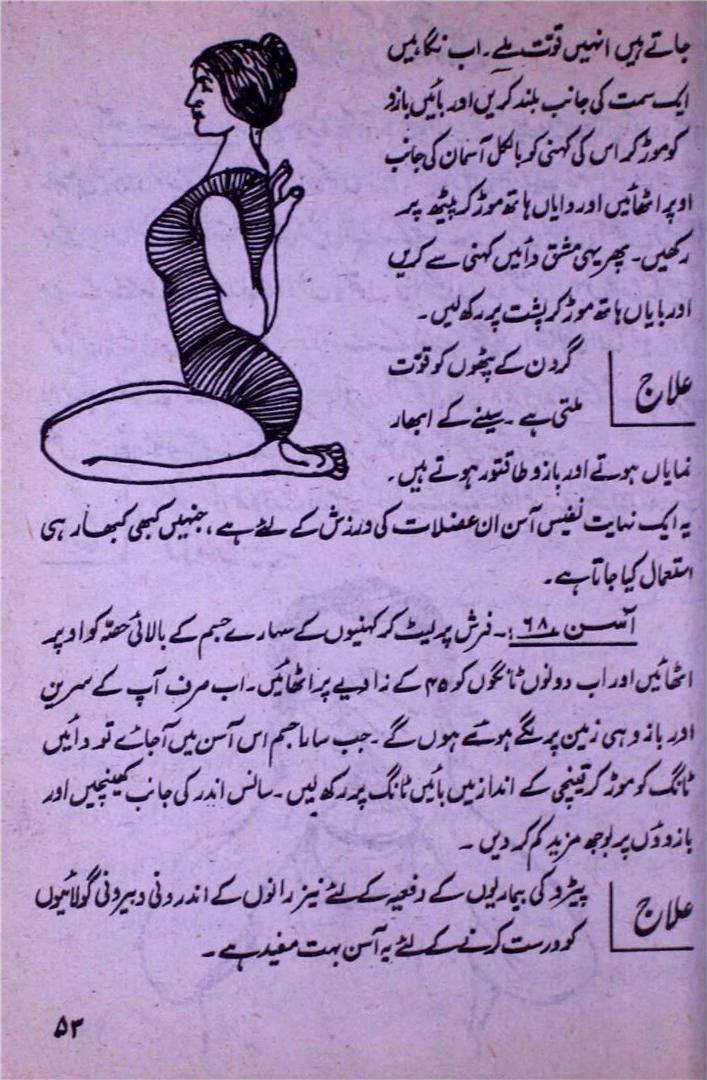 جاتے ہیں انہیں قوّت ملے۔ اب نگاہیں
ایک سمت کی جانب بلند کریں اور بائیں بازو
کو موڑ کر اس کی کہنی کو بالکل آسمان کی جانب
اوپر اٹھائیں اور دایاں ہاتھ موڑ کر پیٹھ پر
رکھیں۔ پھر یہی مشق دائیں کہنی سے کریں
اور بایاں ہاتھ موڑ کر پشت پر رکھ لیں۔
علاج
گردن کے پٹھوں کو قوّت
ملتی ہے۔ سینے کے ابھار
نمایاں ہوتے اور بازو طاقتور ہوتے ہیں۔
یہ ایک نہایت نفیس آسن ان عضلات کی ورزش کے لئے ہے، جنہیں کبھی کبھار ہی
استعمال کیا جاتا ہے۔
آسن ۶۸:۔ فرش پر لیٹ کر کہنیوں کے سہارے جسم کے بالائی حصّہ کو اوپر
اٹھائیں اور اب دونوں ٹانگوں کو ۴۵ کے زاویے پر اٹھائیں۔ اب صرف آپ کے سرین
اور بازو ہی زمین پر لگے ہوئے ہوں گے۔ جب سارا جسم اس آسن میں آجائے تو دائیں
ٹانگ کو موڑ کر قینچی کے انداز میں بائیں ٹانگ پر رکھ لیں۔ سانس اندر کی جانب کھینچیں اور
بازوؤں پر بوجھ مزید کم کر دیں ۔
علاج
پیڑو کی بیماریوں کے دفعیہ کے لئے نیز رانوں کے اندرونی و بیرونی گولائیوں
کو درست کرنے کے لئے یہ آسن بہت مفید ہے۔
۵۳